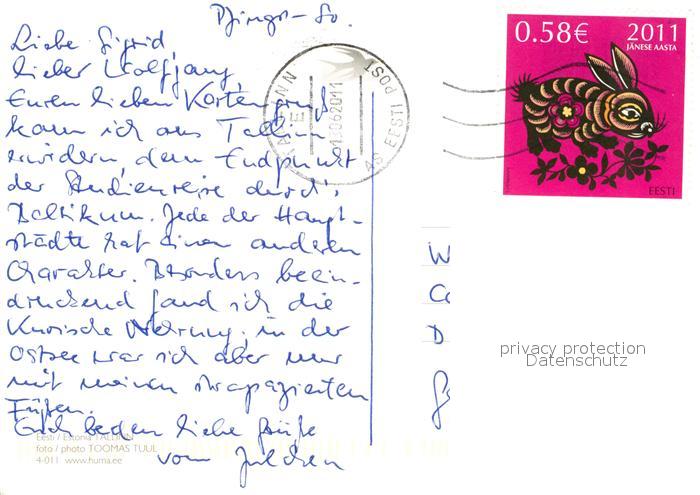 Pfingst-So.
Liebe Sigrid,
lieber Wolfgang,
Euren lieben Kartengruß
kann ich aus Tallinn
erwidern dem Endpunkt
der Studienreise durch's
Baltikum. Jede der Haupt-
städte hat einen anderen
Charakter. Besonders beein-
druckend fand ich die
Kurische Nehrung, in der
Ostsee war ich aber nur
mit meinen strapazierten
Füßen.
Euch beiden liebe Grüße
von Julchen
Eesti / Estonia TALLINN
foto / photo TOOMAS TUUL
4-011 www.huma.ee
AS EESTI POST
0.58€ 2011
JÄNESE AASTA
EESTI
W
D
privacy protection
Datenschutz